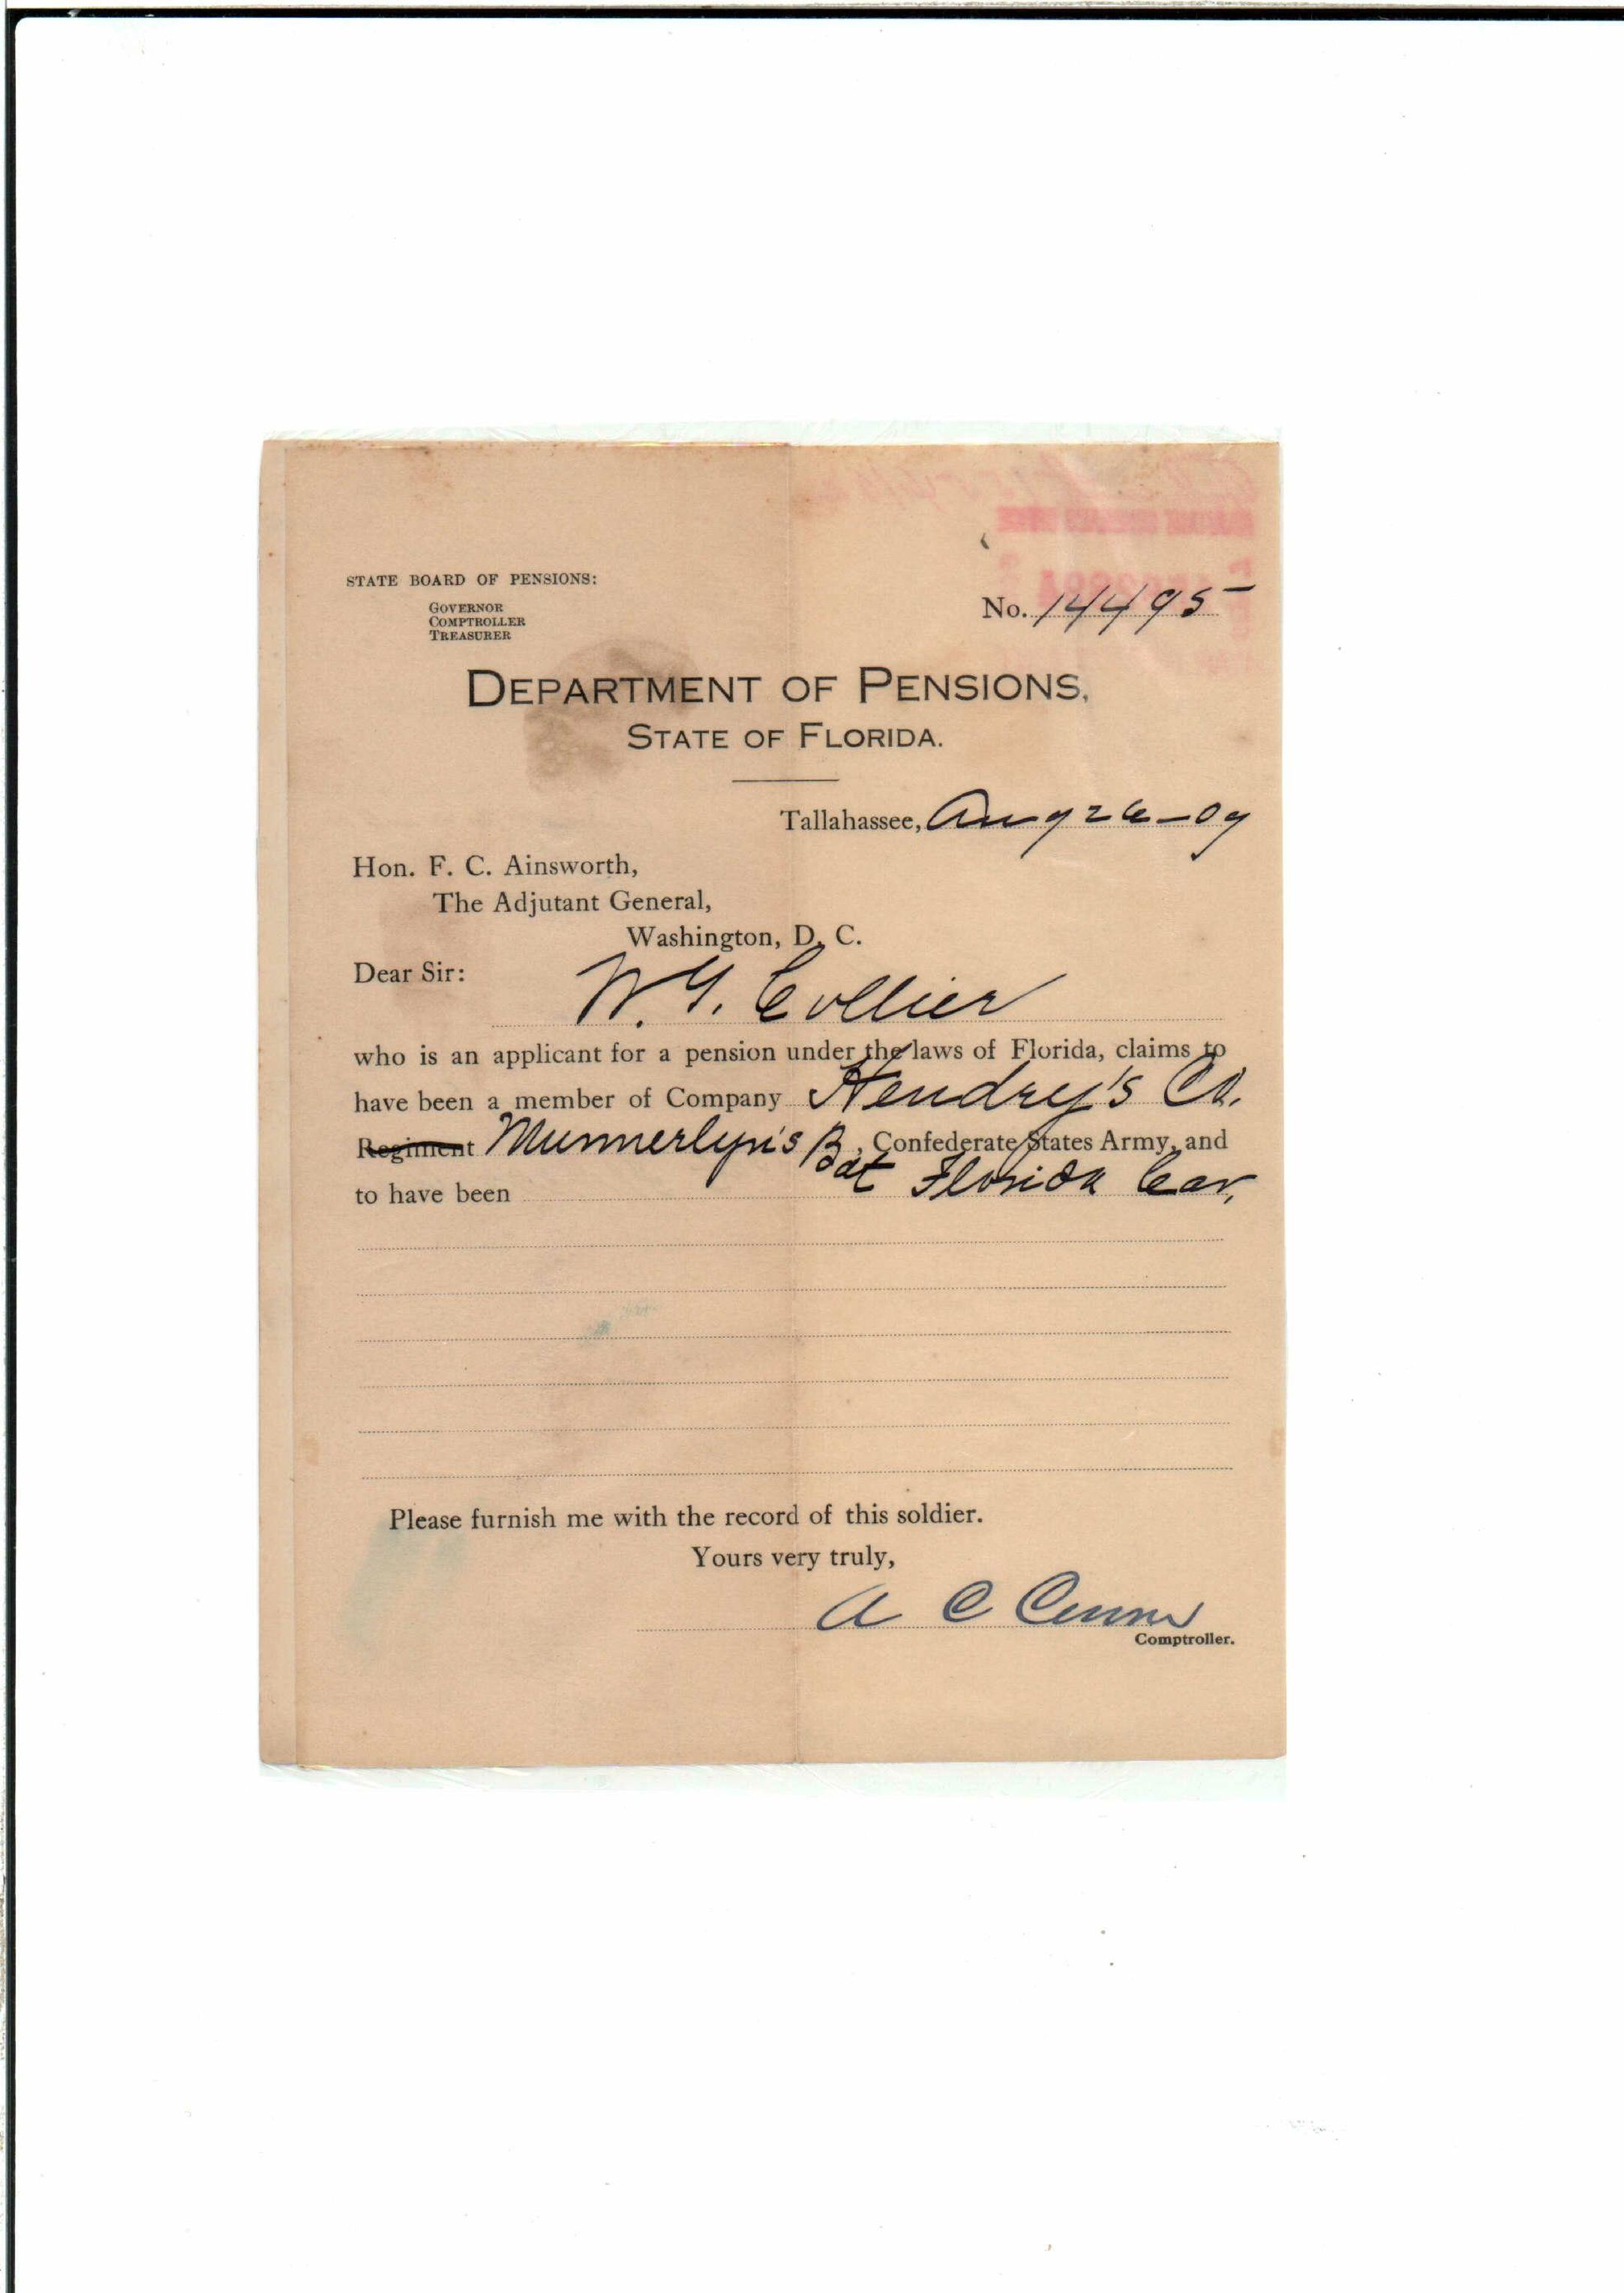 STATE BOARD OF PENSIONS:
GOVERNOR
COMPTROLLER
TREASURER
No. 14495
DEPARTMENT OF PENSIONS,
STATE OF FLORIDA.
Tallahassee, Aug 26-09
Hon. F. C. Ainsworth,
The Adjutant General,
Washington, D. C.
Dear Sir:
W. Y. Collier
who is an applicant for a pension under the laws of Florida, claims to
have been a member of Company Hendry's Co.
Regiment Munnerlyn's Bat, Confederate States Army, and
to have been Florida Cav.
Please furnish me with the record of this soldier.
Yours very truly,
A C Croom
Comptroller.